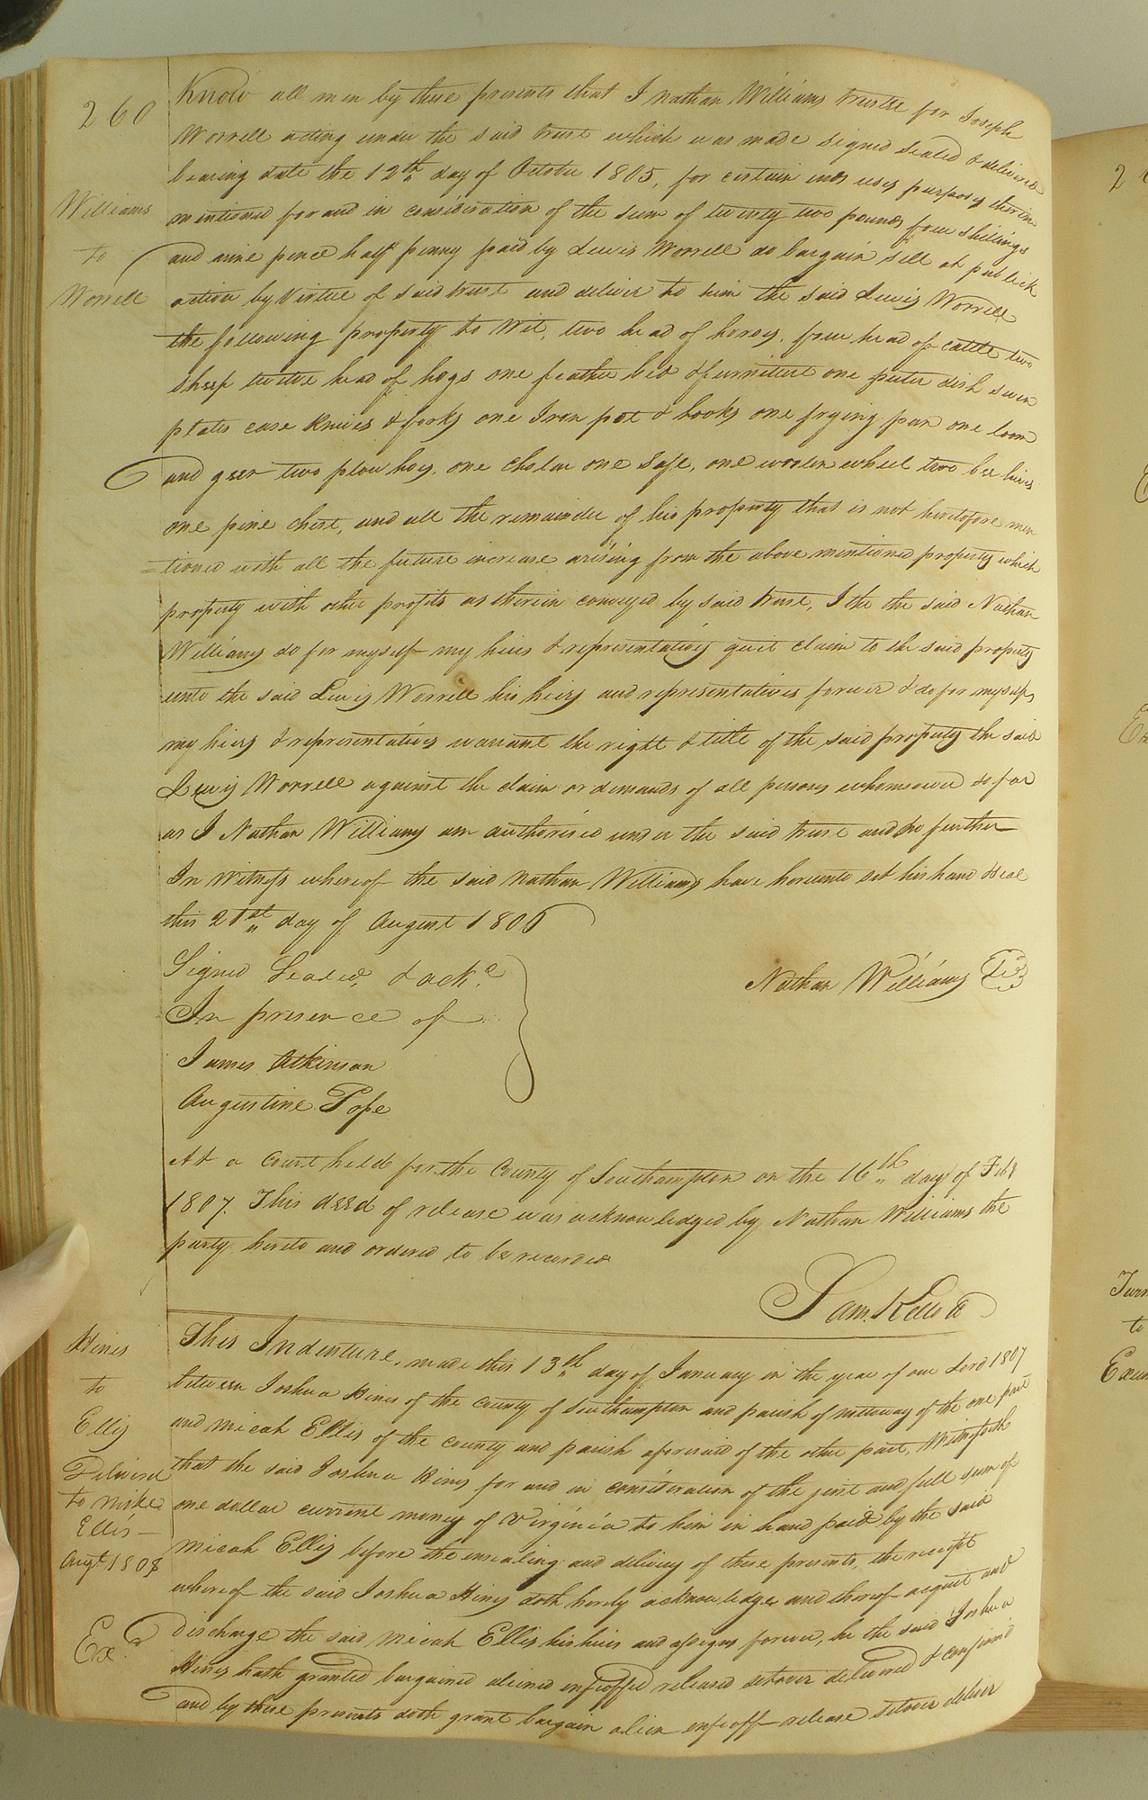 260
Williams
to
Worrell
Know all men by these presents that I Nathan Williams trustee for Joseph
Worrell acting under the said trust which was made signed sealed & delivered
bearing date the 12th day of October 1805, for certain uses purposes therein
mentioned for and in consideration of the sum of twenty two pounds four shillings
and nine pence half penny paid by Lewis Worrell do bargain sell at publick
action by Virtue of said trust and deliver to him the said Lewis Worrell
the following property to Wit, two head of horses, four head of cattle two
sheep twelve head of hogs one feather bed & furniture one puter dish seven
plates case knives & forks one Iron pot & hooks one frying pan one loom
and geer two plow hoes, one one Safe, one woolen wheel two bee hives
one pine chest, and all the remainder of his property that is not heretofore men
=tioned with all the future increase arising from the above mentioned property which
property with other profits as therein conveyed by said trust, I the the said Nathan
Williams do for myself my heirs & representatives quit claim to the said property
unto the said Lewis Worrell his heirs and representatives forever & do for myself
my heirs & representatives warrant the right & title of the said property the said
Lewis Worrell against the claim or demands of all persons whomsoever so far
as I Nathan Williams am authorised under the said trust and no further
In Witness whereof the said Nathan Williams have hereunto set his hand & seal
this 21st day of August 1806
Signed Sealed, & ackd.
In presence of
James Atkinson
Augustine Pope
Nathan Williams
At a Court held for the County of Southampton on the 16th day of Feb
1807. This deed of release was acknowledged by Nathan Williams the
party hereto and ordered to be recorded
Sam. Kello
Hines
to
Ellis
Delivered
to
Ellis
Augt 1808
Exd.
This Indenture, made this 13th day of January in the year of our Lord 1807
between Joshua Hines of the County of Southampton and parish of nottoway of the one part
and Micah Ellis of the county and parish aforesaid of the other part, Witnesseth
that the said Joshua Hines for and in consideration of the just and full sum of
one dollar current money of Virginia to him in hand paid by the said
Micah Ellis before the ensealing and delivery of these presents, the receipt
whereof the said Joshua Hines doth hereby acknowledge and thereof acquit and
Discharge the said Micah Ellis his heirs and assigns forever, he the said Joshua
Hines hath granted bargained aliened enfeoffed released setover delivered & confirmed
and by these presents doth grant bargain alien enfeoff release setover deliver